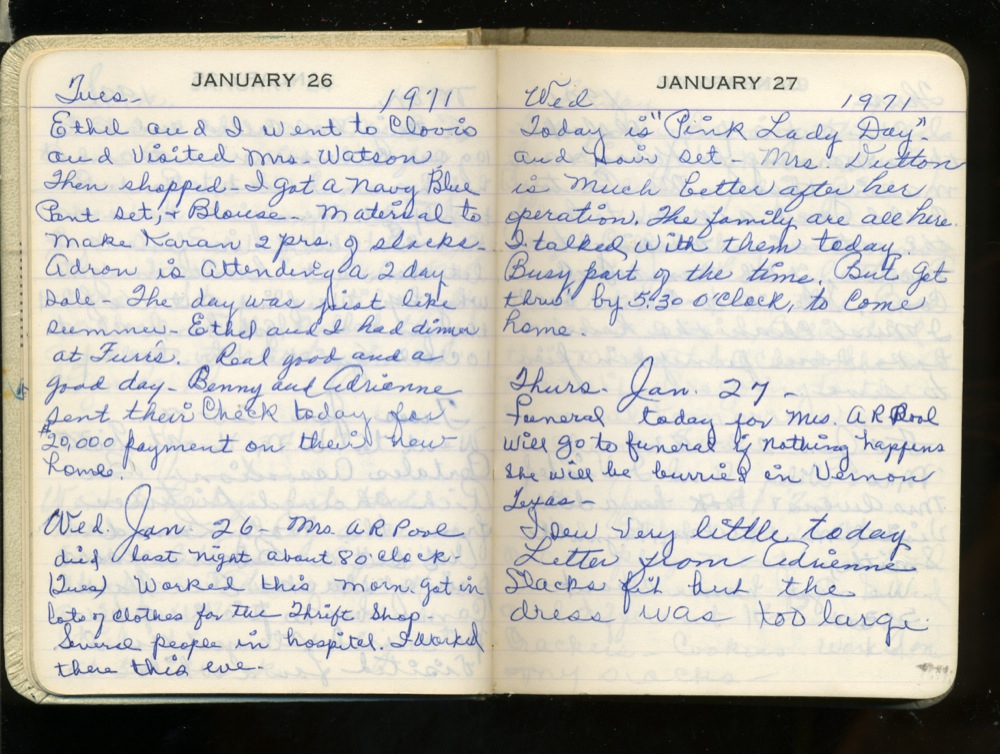 JANUARY 26
Tues- 1971
Ethel and I went to Clovis
and visited Mrs. Watson.
Then shopped - I got a Navy Blue
Pant set, + Blouse - Material to
make Karan 2 prs. of slacks -
Adron is attending a 2 day
Sale - The day was just like
summer - Ethel and I had dinner
at Furrs. Real good and a
good day - Benny and Adrienne
sent their Check today for
$20,000 payment on their new
home.
Wed. Jan. 26 - Mrs. A R Pool
died last night about 8 o'clock -
(Tues) Worked this morn. got in
lots of clothes for the Thrift Shop -
Several people in hospital. I worked
there this eve -
JANUARY 27
Wed 1971
Today is "Pink Lady Day".
and hair set - Mrs Dutton
is much better after her
operation. The family are all here.
I talked with them today.
Busy part of the time, But get
thru by 5:30 O'Clock, to come
home.
Thurs. Jan. 27 -
Funeral today for Mrs. A R Pool
will go to funeral if nothing happens
she will be burried in Vernon
Texas -
I sew very little today
Letter from Adrienne
Slacks fit but the
dress was too large.